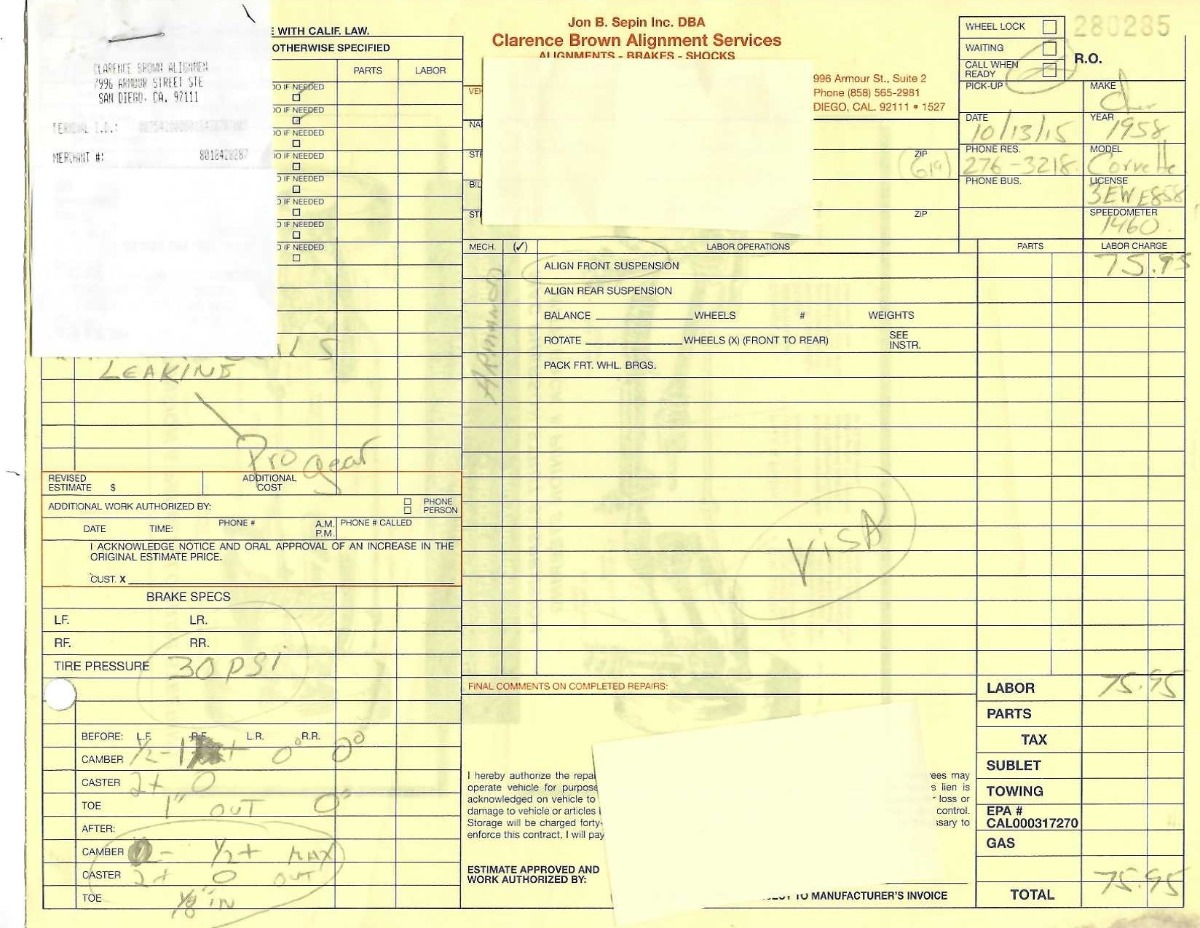 E WITH CALIF. LAW.
OTHERWISE SPECIFIED
PARTS LABOR
CLARENCE BROWN ALIGNMEN
7996 ARMOUR STREET STE
SAN DIEGO, CA. 92111
TERMINAL I.D.:
MERCHANT #: 8018420287
DO IF NEEDED
DO IF NEEDED
DO IF NEEDED
DO IF NEEDED
DO IF NEEDED
DO IF NEEDED
DO IF NEEDED
DO IF NEEDED
LEAKING
Pro gear
REVISED ESTIMATE $ ADDITIONAL COST
ADDITIONAL WORK AUTHORIZED BY: PHONE PERSON
DATE TIME: PHONE # A.M. P.M. PHONE # CALLED
I ACKNOWLEDGE NOTICE AND ORAL APPROVAL OF AN INCREASE IN THE
ORIGINAL ESTIMATE PRICE.
CUST. X
BRAKE SPECS
LF. LR.
RF. RR.
TIRE PRESSURE 30 PSI
BEFORE: L.F. R.F. L.R. R.R.
CAMBER 1/2 - 0° 0°
CASTER 2+ 0
TOE 1" OUT 0°
AFTER:
CAMBER - 1/2+ MAX
CASTER 2+ 0 OUT
TOE 1/8" IN
Jon B. Sepin Inc. DBA
Clarence Brown Alignment Services
ALIGNMENTS - BRAKES - SHOCKS
996 Armour St., Suite 2
Phone (858) 565-2981
DIEGO, CAL. 92111 • 1527
NA
ST
ZIP
BIL
ST
ZIP
WHEEL LOCK
WAITING
CALL WHEN READY
280285
R.O.
PICK-UP MAKE
DATE 10/13/15 YEAR 1958
PHONE RES. (619) 276-3218 MODEL Corvette
PHONE BUS. LICENSE 3EWE858
SPEEDOMETER 1460
MECH. (✓) LABOR OPERATIONS PARTS LABOR CHARGE
ARMANDO
ALIGN FRONT SUSPENSION 75.95
ALIGN REAR SUSPENSION
BALANCE WHEELS # WEIGHTS
ROTATE WHEELS (X) (FRONT TO REAR) SEE INSTR.
PACK FRT. WHL. BRGS.
VISA
FINAL COMMENTS ON COMPLETED REPAIRS:
I hereby authorize the repai ees may
operate vehicle for purpose s lien is
acknowledged on vehicle to loss or
damage to vehicle or articles control.
Storage will be charged forty- ssary to
enforce this contract, I will pay
ESTIMATE APPROVED AND
WORK AUTHORIZED BY:
TO MANUFACTURER'S INVOICE
LABOR 75.95
PARTS
TAX
SUBLET
TOWING
EPA #
CAL000317270
GAS
TOTAL 75.95